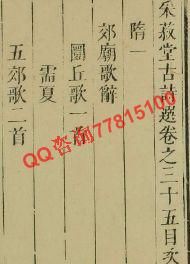 采菽堂古詩選卷之三十五目次
隋一
郊廟歌辭
圜丘歌一首
需夏
五郊歌二首
QQ咨询77815100